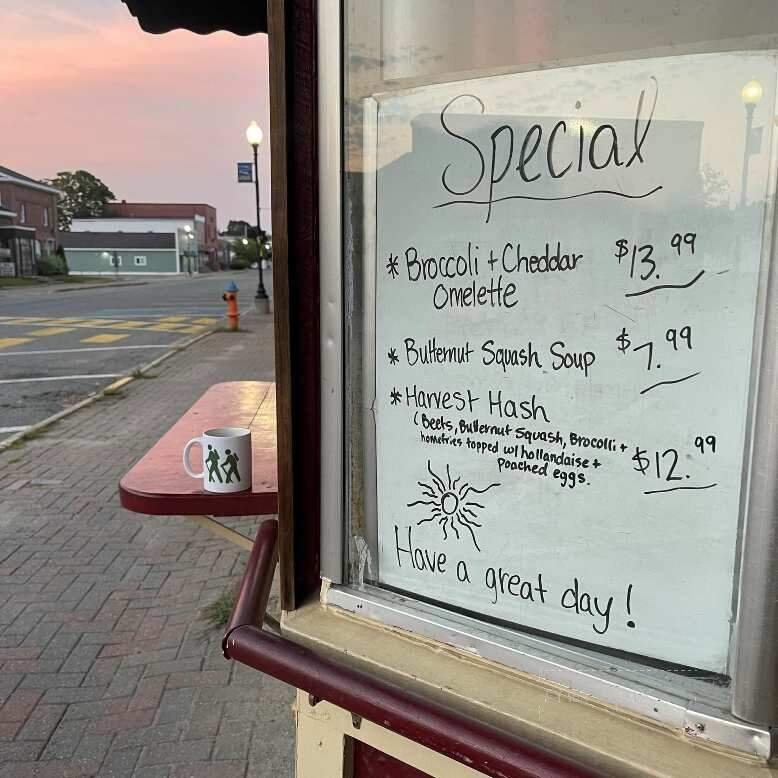 Special
* Broccoli + Cheddar $13.99
Omelette
* Butternut Squash Soup $7.99
* Harvest Hash
(Beets, Butternut Squash, Brocolli +
homefries topped w/ hollandaise + $12.99
poached eggs.
Have a great day!